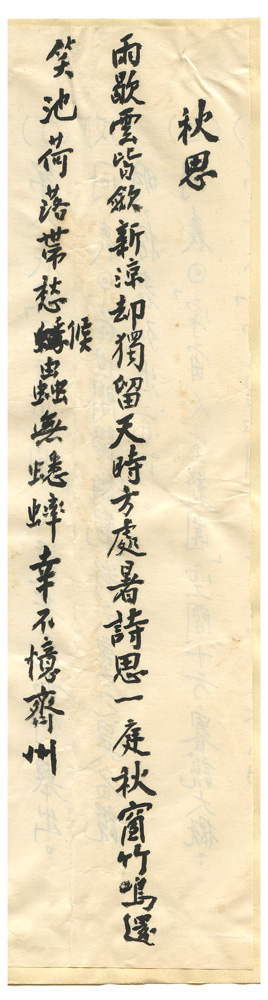 秋思
雨歇雲皆斂新涼却獨留天時方處暑詩思一庭秋窗竹鳴還
笑池荷落帶愁候蟲無蟋蟀幸不憶齊州